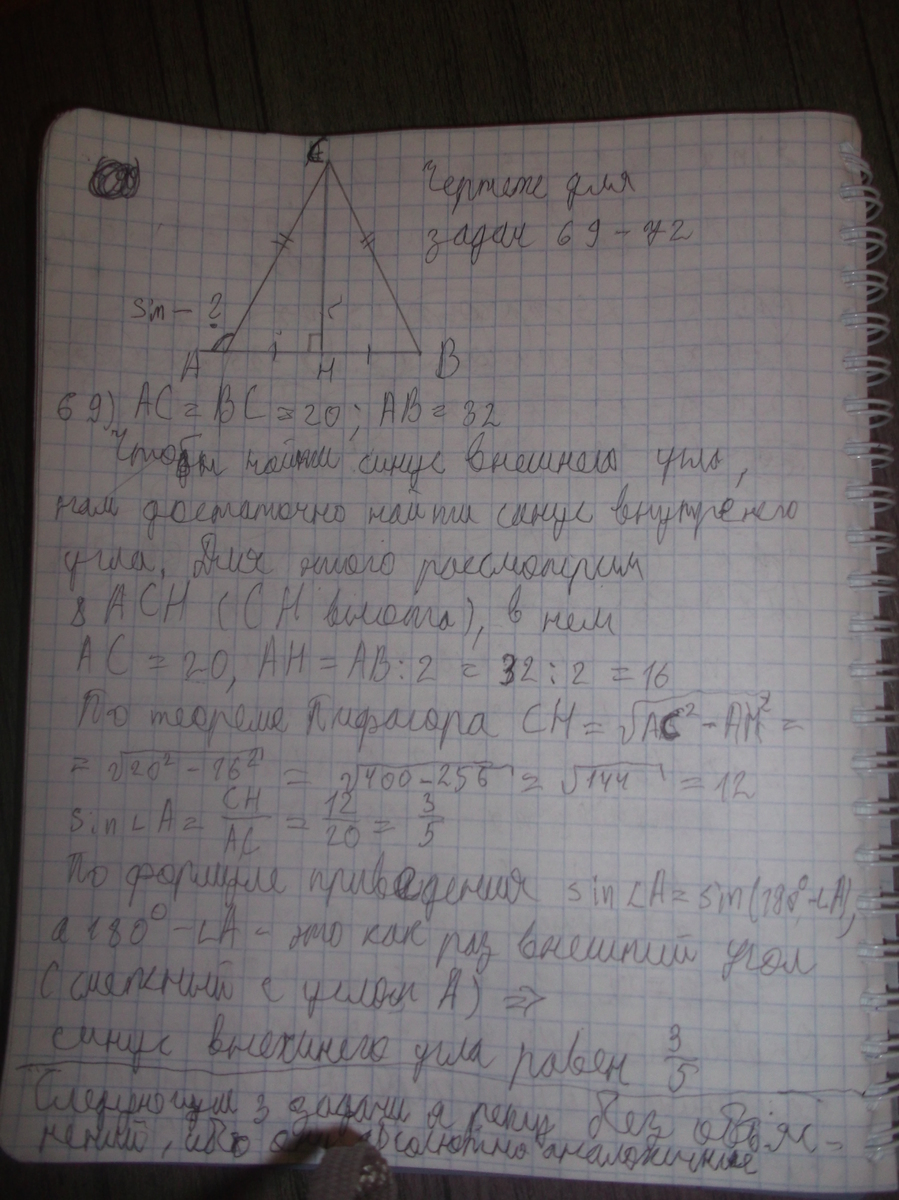 C
Чертеж для
задач 69-72
sin - ?
A H B
69) AC = BC = 20; AB = 32
Чтобы найти синус внешнего угла,
нам достаточно найти синус внутренего
угла. Для этого рассмотрим
ACH (CH высота), в нем
AC = 20, AH = AB : 2 = 32 : 2 = 16
По теореме Пифагора CH = √AC² - AH² =
= √20² - 16² = √400 - 256 = √144 = 12
sin ∠A = CH/AC = 12/20 = 3/5
По формуле приведения sin ∠A = sin(180° - ∠A),
а 180° - ∠A - это как раз внешний угол
(смежный с углом A) ⇒
синус внешнего угла равен 3/5
Следующие 3 задачи я решу без объяс-
нений, ибо они абсолютно аналогичные